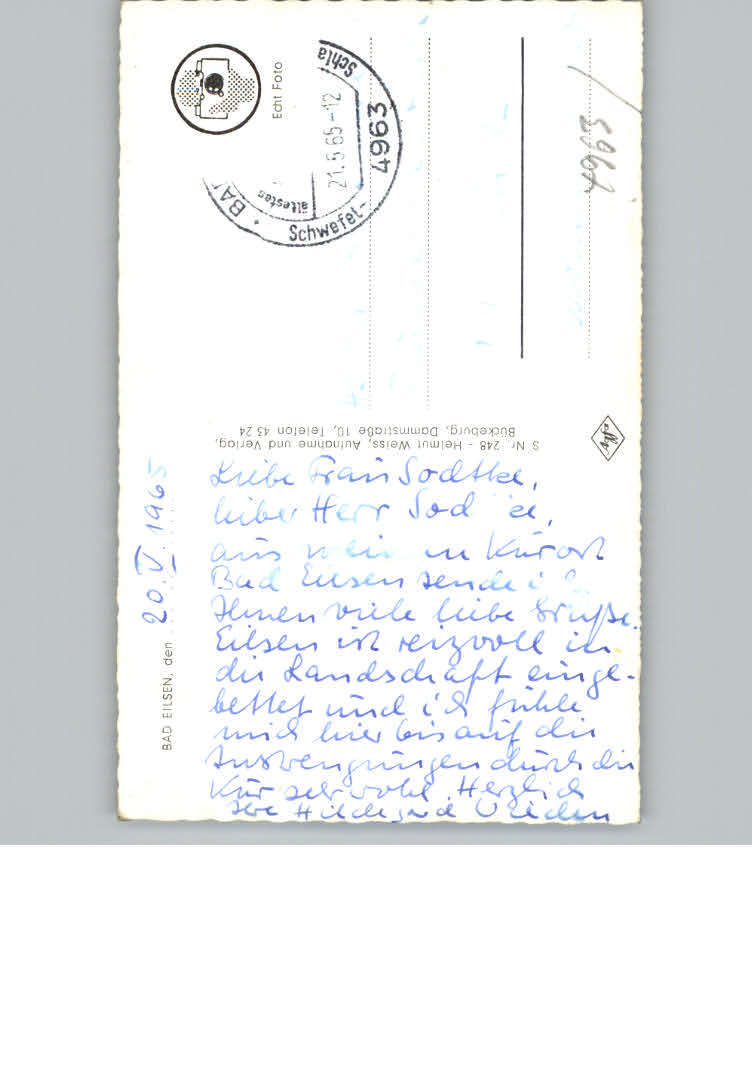 Echt Foto
BAD
ältesten
Schwefel-
Schla
21.5.65-12
4963
4963
S Nr. 248 - Helmut Weiss, Aufnahme und Verlag,
Bückeburg, Dammstraße 10, Telefon 43 24
Agfa
BAD EILSEN, den 20.V.1965
Liebe Frau Sodtke,
lieber Herr Sod ke,
aus Kurort
Bad Eilsen sende i
Ihnen viele liebe Grüße.
Eilsen ist reizvoll in
die Landschaft einge-
bettet und ich fühle
mich hier bis auf die
Anstrengungen durch die
Kur sehr wohl. Herzlich
Ihre Hildegard